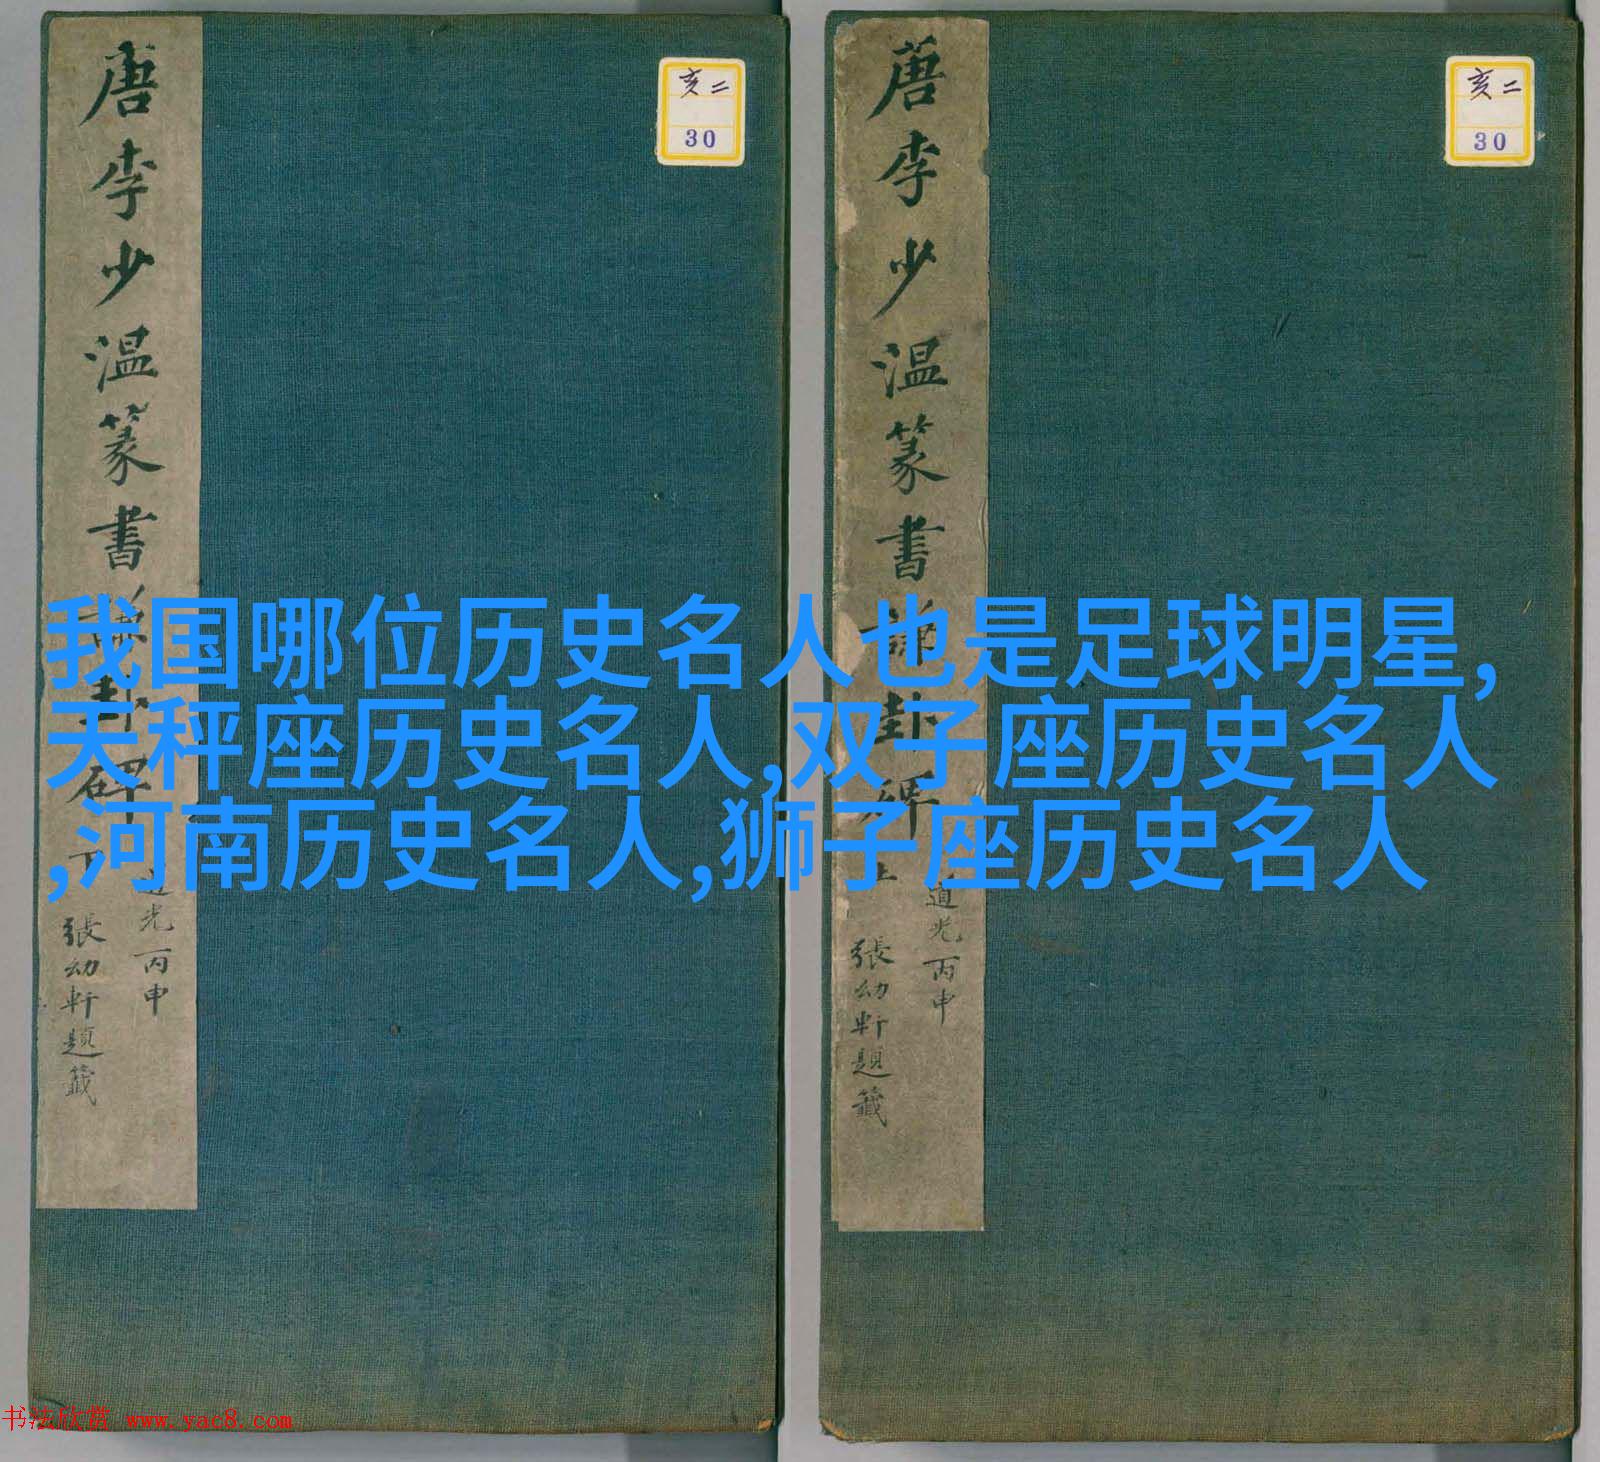 唐李少温篆書謙卦碑下
道光丙申
張幼軒題籤
亥二
30
唐李少温篆書謙卦碑上
道光丙申
張幼軒題籤
亥二
30
我国哪位历史名人也是足球明星,
天秤座历史名人,双子座历史名人
,河南历史名人,狮子座历史名人
书法欣赏 www.yac8.com